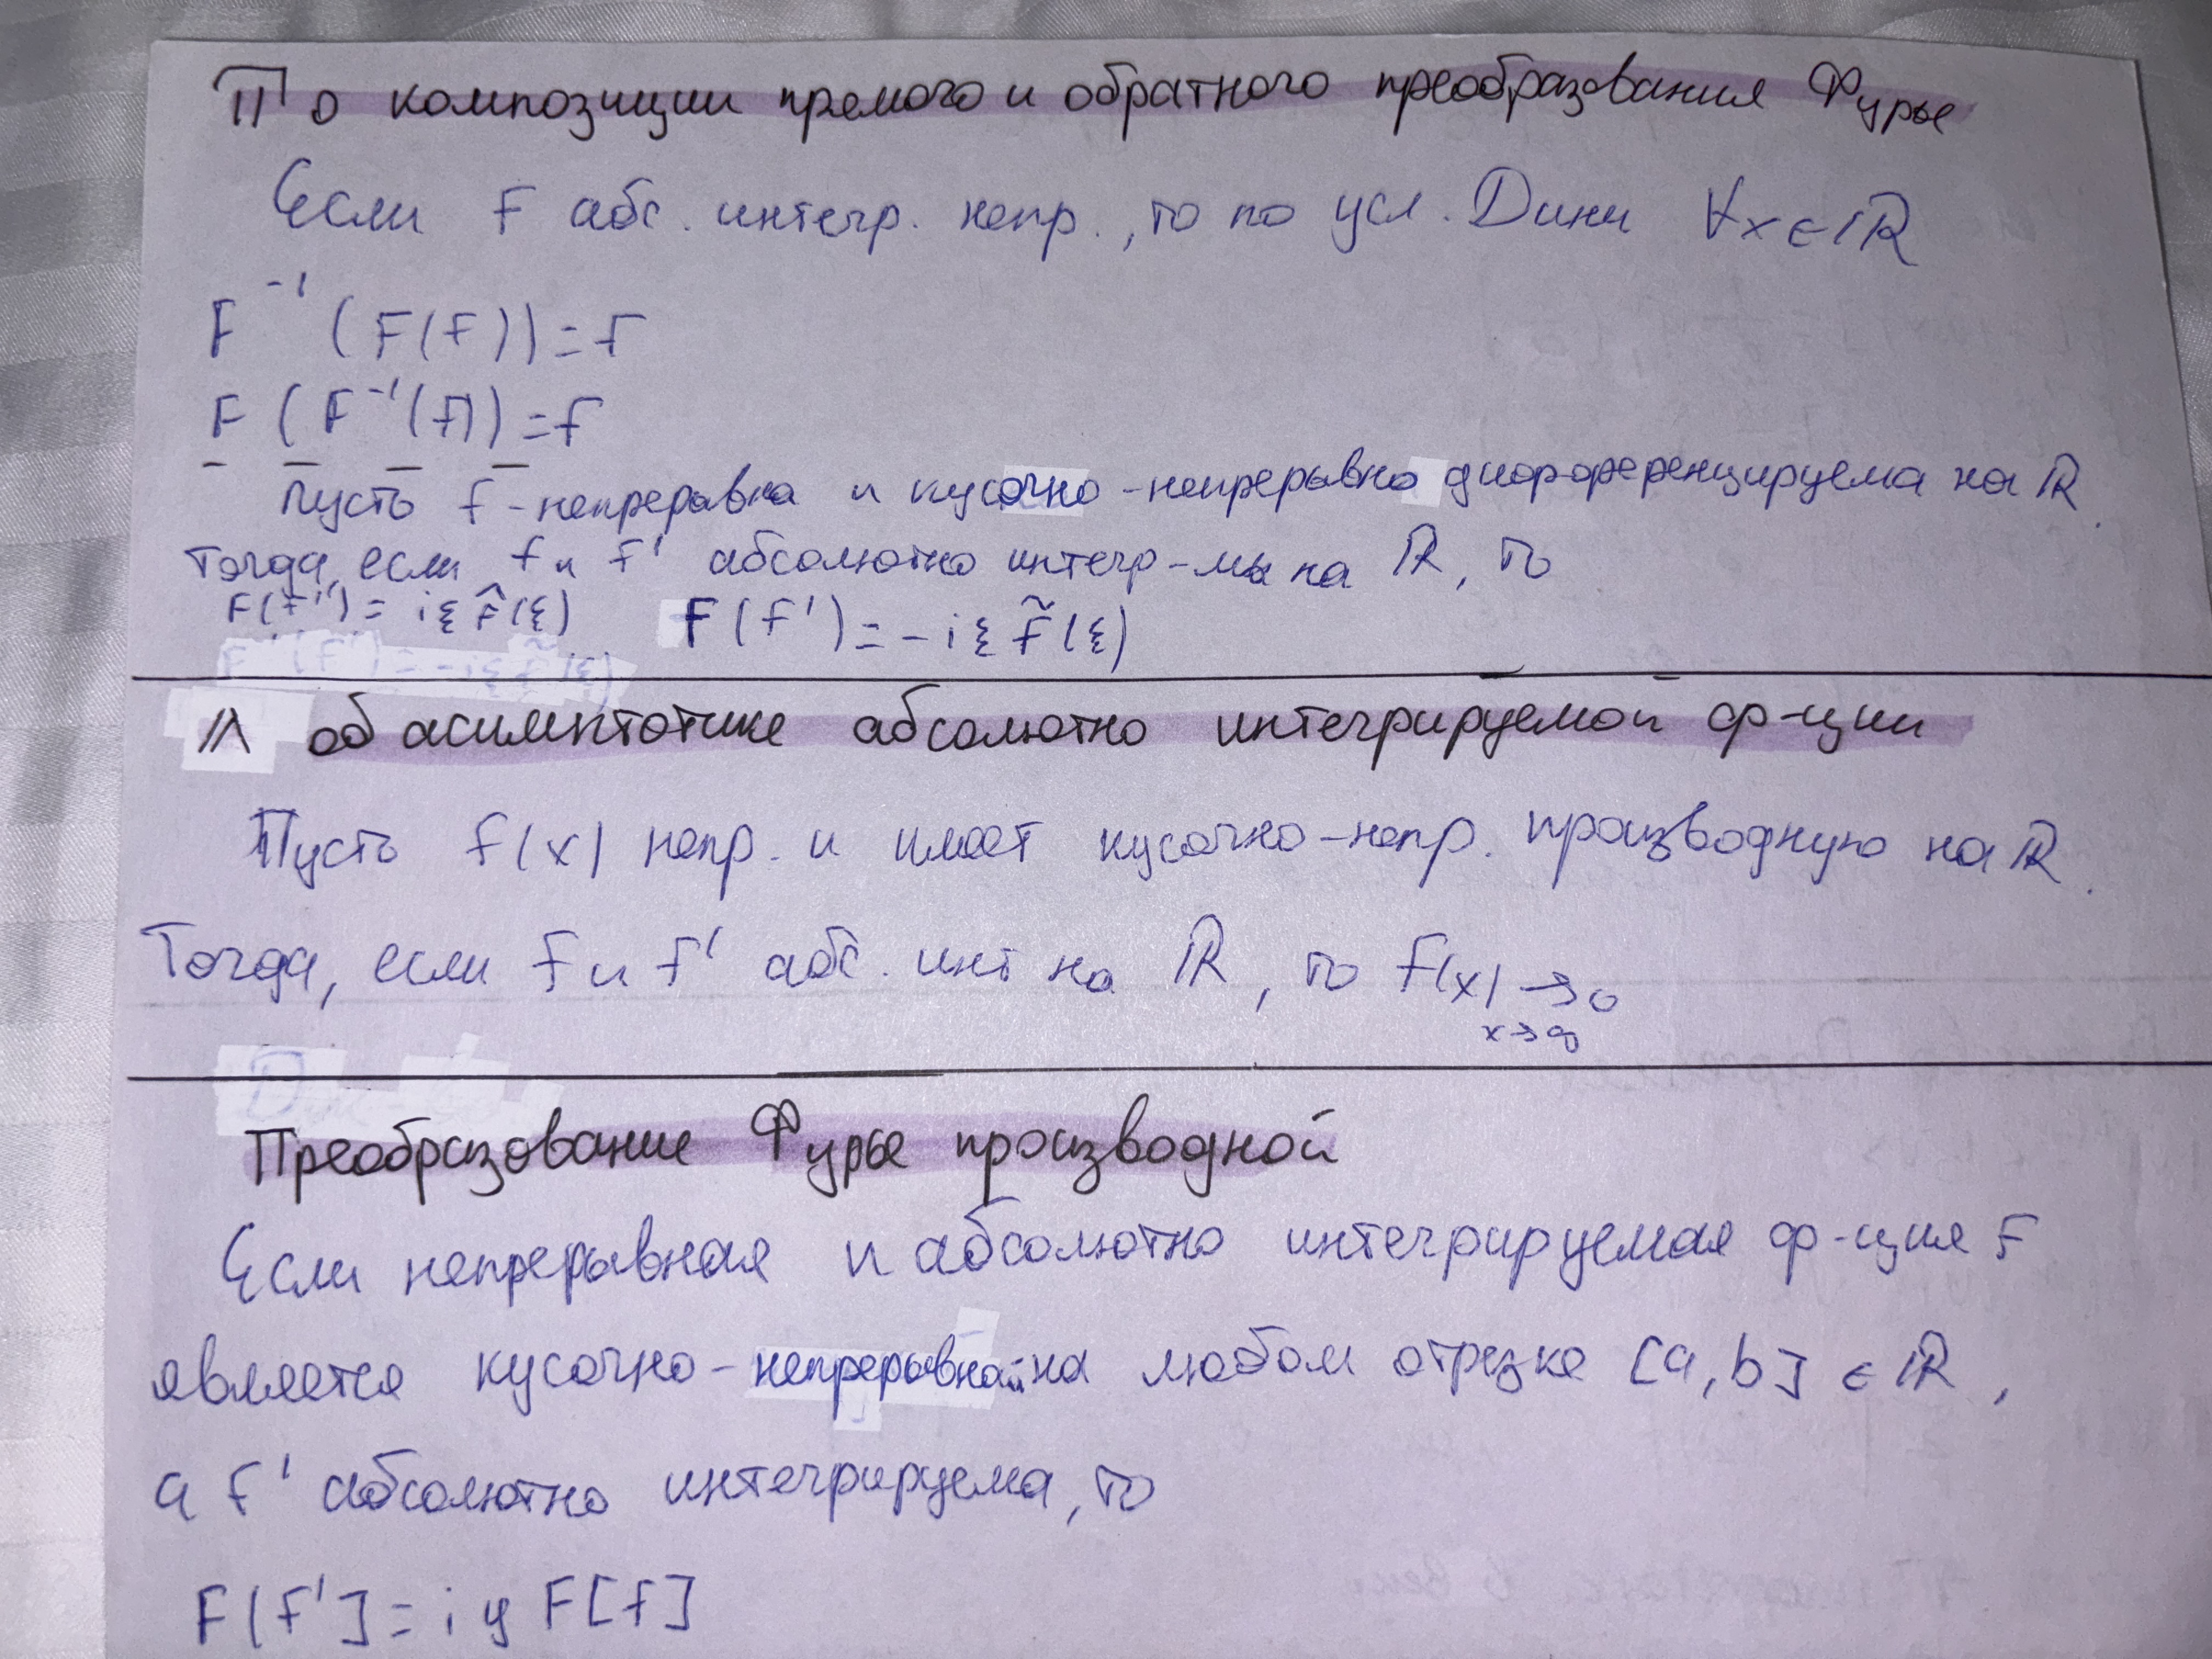 П о композиции прямого и обратного преобразования Фурье
Если f абс. интегр. непр., то по усл. Дини ∀x∈ℝ
F⁻¹(F(f))=f
F(F⁻¹(f))=f
Пусть f - непрерывна и кусочно-непрерывно дифференцируема на ℝ.
Тогда, если f и f' абсолютно интегр-мы на ℝ, то
F(f') = iξ f̂(ξ) F(f') = -iξ f̃(ξ)
Л об асимптотике абсолютно интегрируемой ф-ции
Пусть f(x) непр. и имеет кусочно-непр. производную на ℝ.
Тогда, если f и f' абс. инт на ℝ, то f(x) → 0
x→∞
Преобразование Фурье производной
Если непрерывная и абсолютно интегрируемая ф-ция f
является кусочно-непрерывной на любом отрезке [a,b] ∈ ℝ,
а f' абсолютно интегрируема, то
F[f'] = i y F[f]